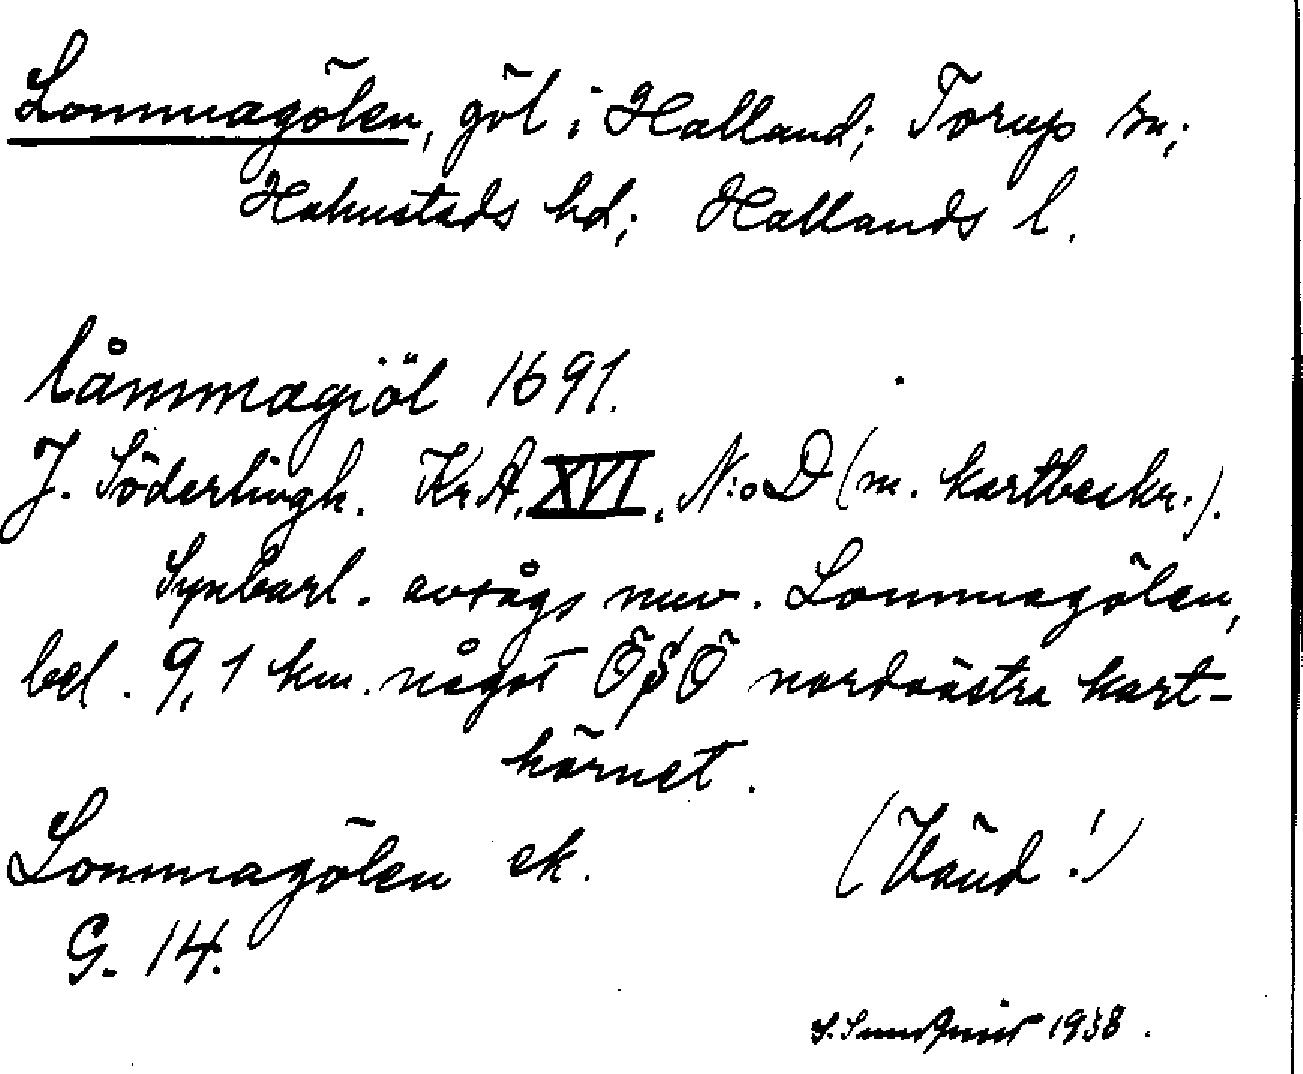 Lommagölen, göl i Halland; Torup sn;
Halmstads hd; Hallands l.
Låmmagiöl 1691.
J. Söderlingh. Kr.A. XVI. N:o D (m. kartbeskr.).
Synbarl. avsågs nuv. Lommagölen,
bel. 9,1 km. något Ö\$Ö nordvästra kart-
hörnet.
Lommagölen ek. (Vänd!)
G. 14.
S. Sundqvist 1938.